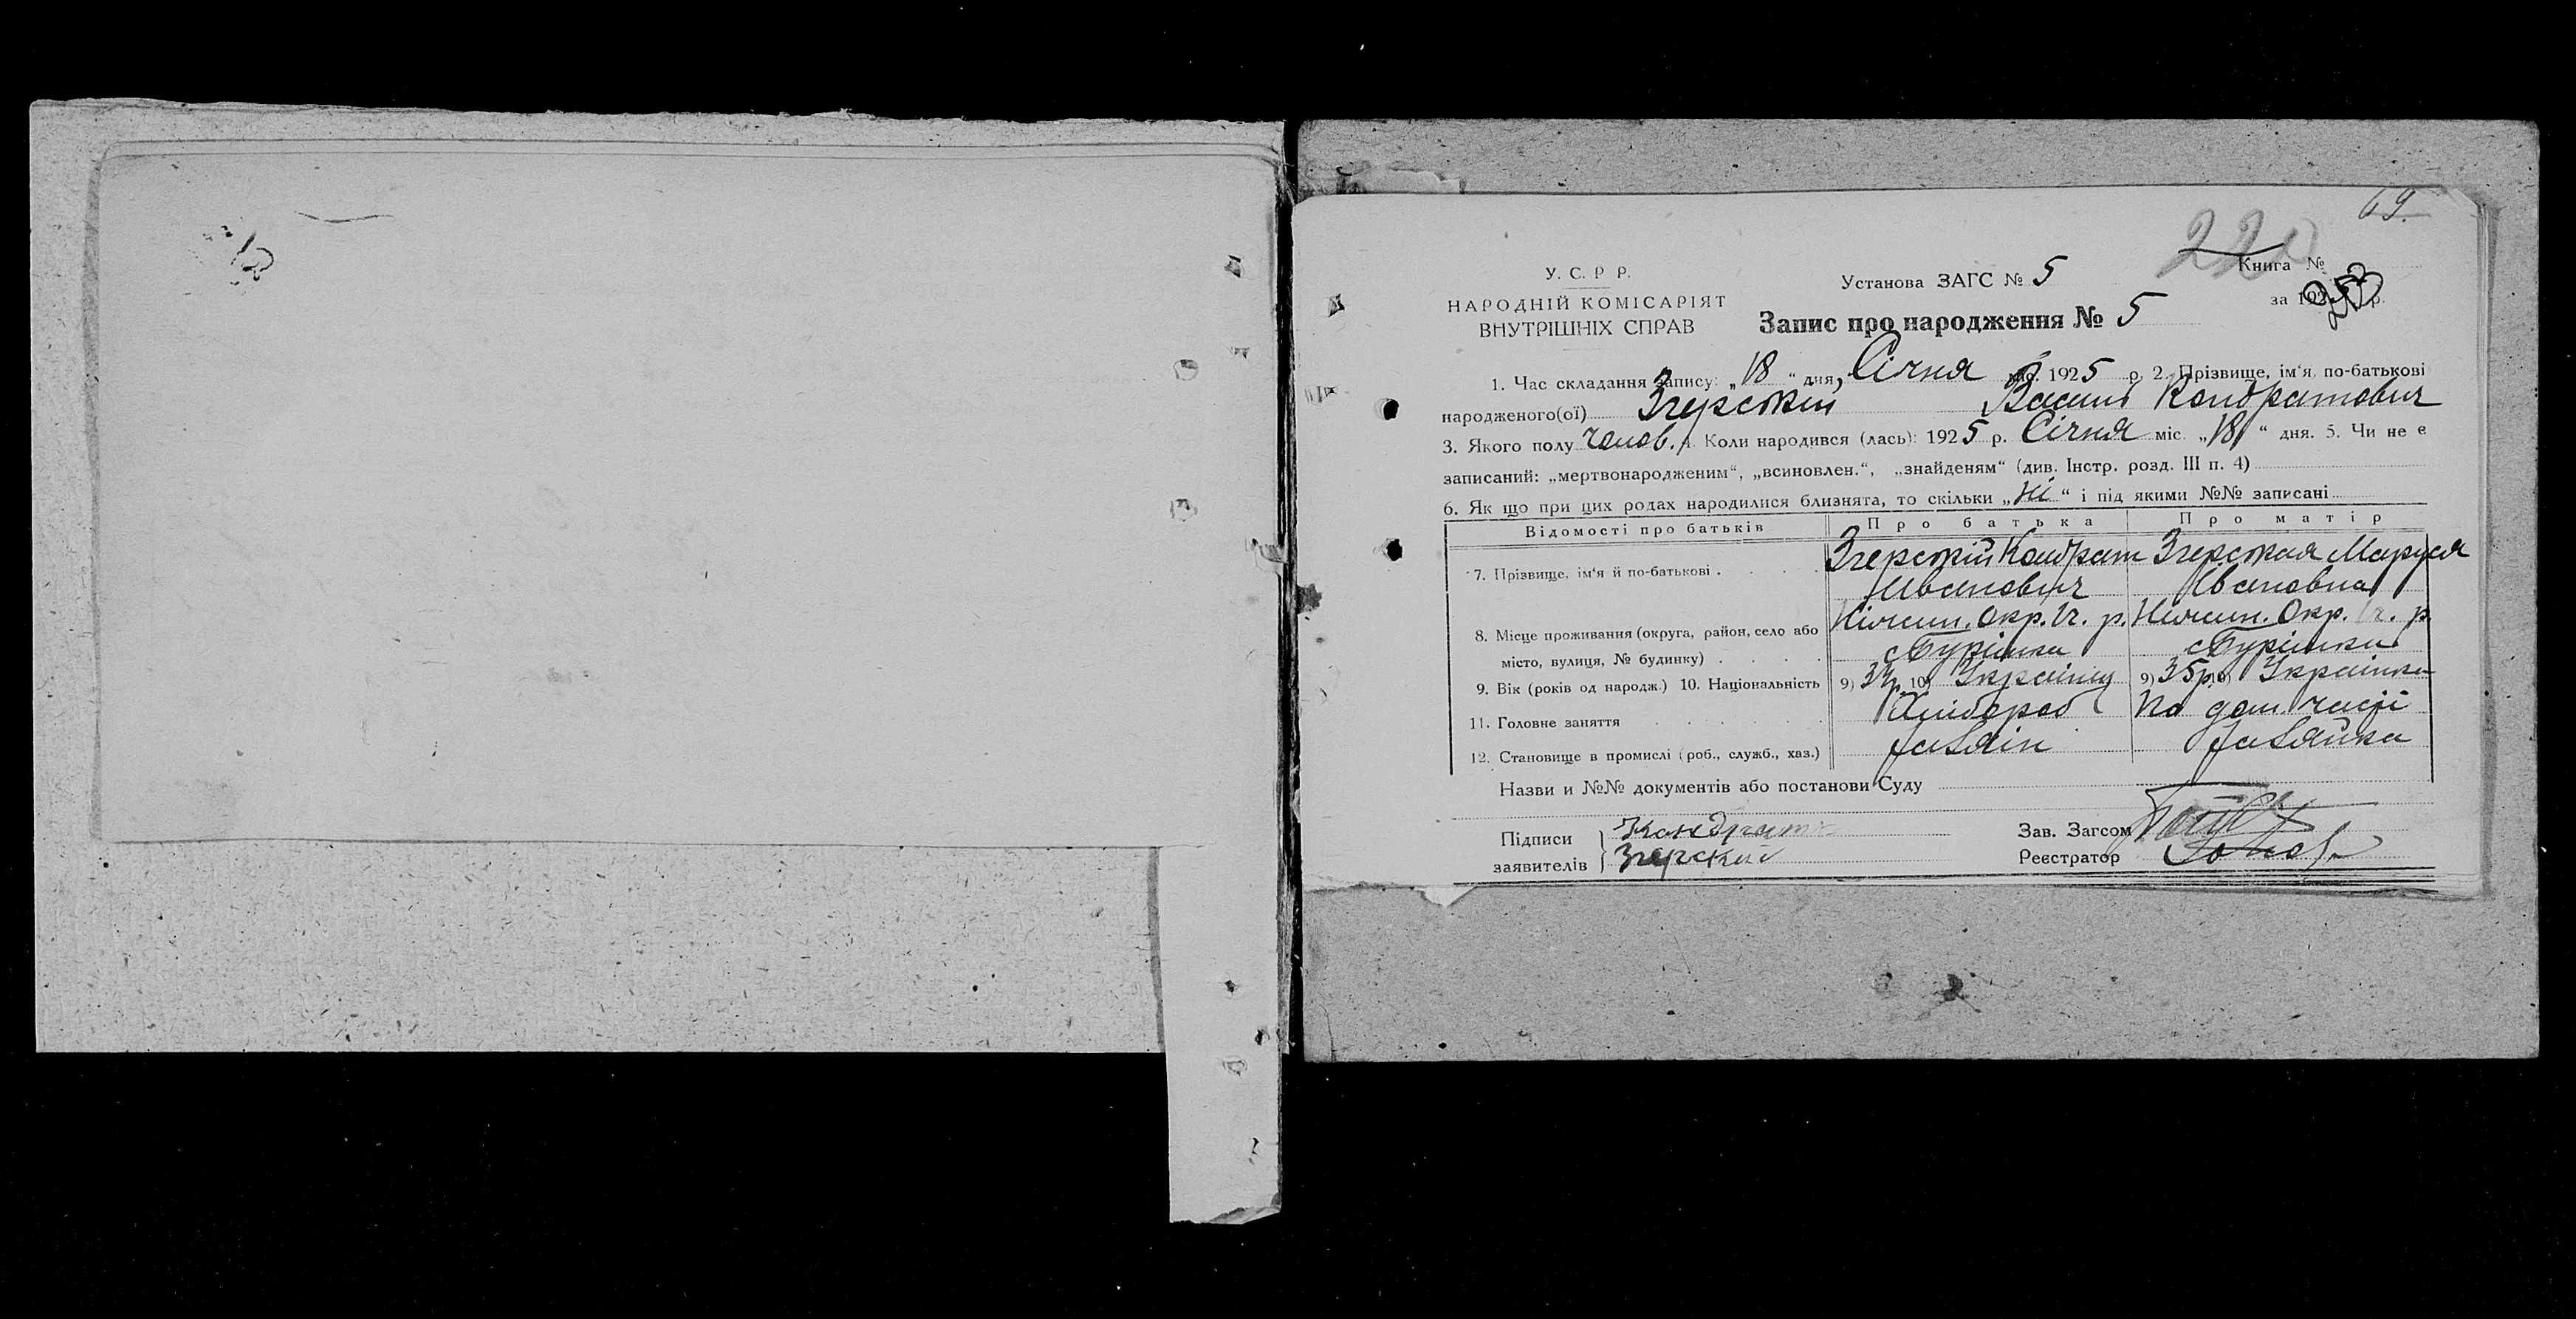 69.
220
У. С. Р Р.
НАРОДНІЙ КОМІСАРІЯТ
ВНУТРІШНІХ СПРАВ
Установа ЗАГС № 5
Книга №
253
за 192 р.
Запис про народження № 5
1. Час складання запису: „18“ дня, Січня міс. 1925 р. 2. Прізвище, ім‘я, по-батькові
народженого(ої) Згерський Василь Кондратович
3. Якого полу чолов. 4. Коли народився (лась): 1925 р. Січня міс. „18“ дня. 5. Чи не є
записаний: „мертвонародженим“, „всиновлен.“, „знайденям“ (див. Інстр. розд. III п. 4)
6. Як що при цих родах народилися близнята, то скільки „Ні“ і під якими №№ записані
Відомості про батьків Про батька Про матір
7. Прізвище, ім‘я й по-батькові . Згерський Кондрат Згерская Маруся
Иванович Ивановна
Ніжин. Окр. Іч. р. Ніжин. Окр. Іч. р.
8. Місце проживання (округа, район, село або
місто, вулиця, № будинку) . с Бурімка с Бурімка
9. Вік (років од народж.) 10. Національність 9) 33р. 10) Українец 9) 35р. 10) Українка
11. Головне заняття Хлібороб По дом. часті
12. Становище в промислі (роб., служб., хаз.) Хазяін Хазяйка
Назви и №№ документів або постанови Суду
Підписи заявителів Кондрат
Згерский
Зав. Загсом
Реєстратор